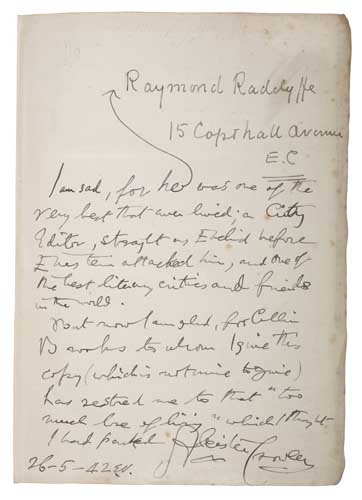 Raymond Radclyffe
15 Copthall Avenue
E.C
I am sad, for he was one of the
very best that ever lived; a City
Editor, straight as Euclid before
Einstein attacked him, and one of
the best literary critics and friends
in the world.
But now I am glad, for Collin
Brooks to whom I give this
copy (which is not mine to give)
has restored me to that "too
much love of living" which I thought
I had parted Aleister Crowley
26-5-42 e.v.